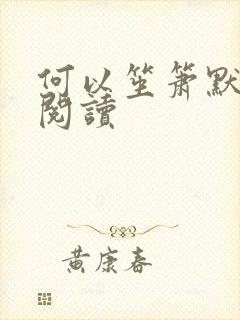 何以笙箫默
閱讀
黄康春